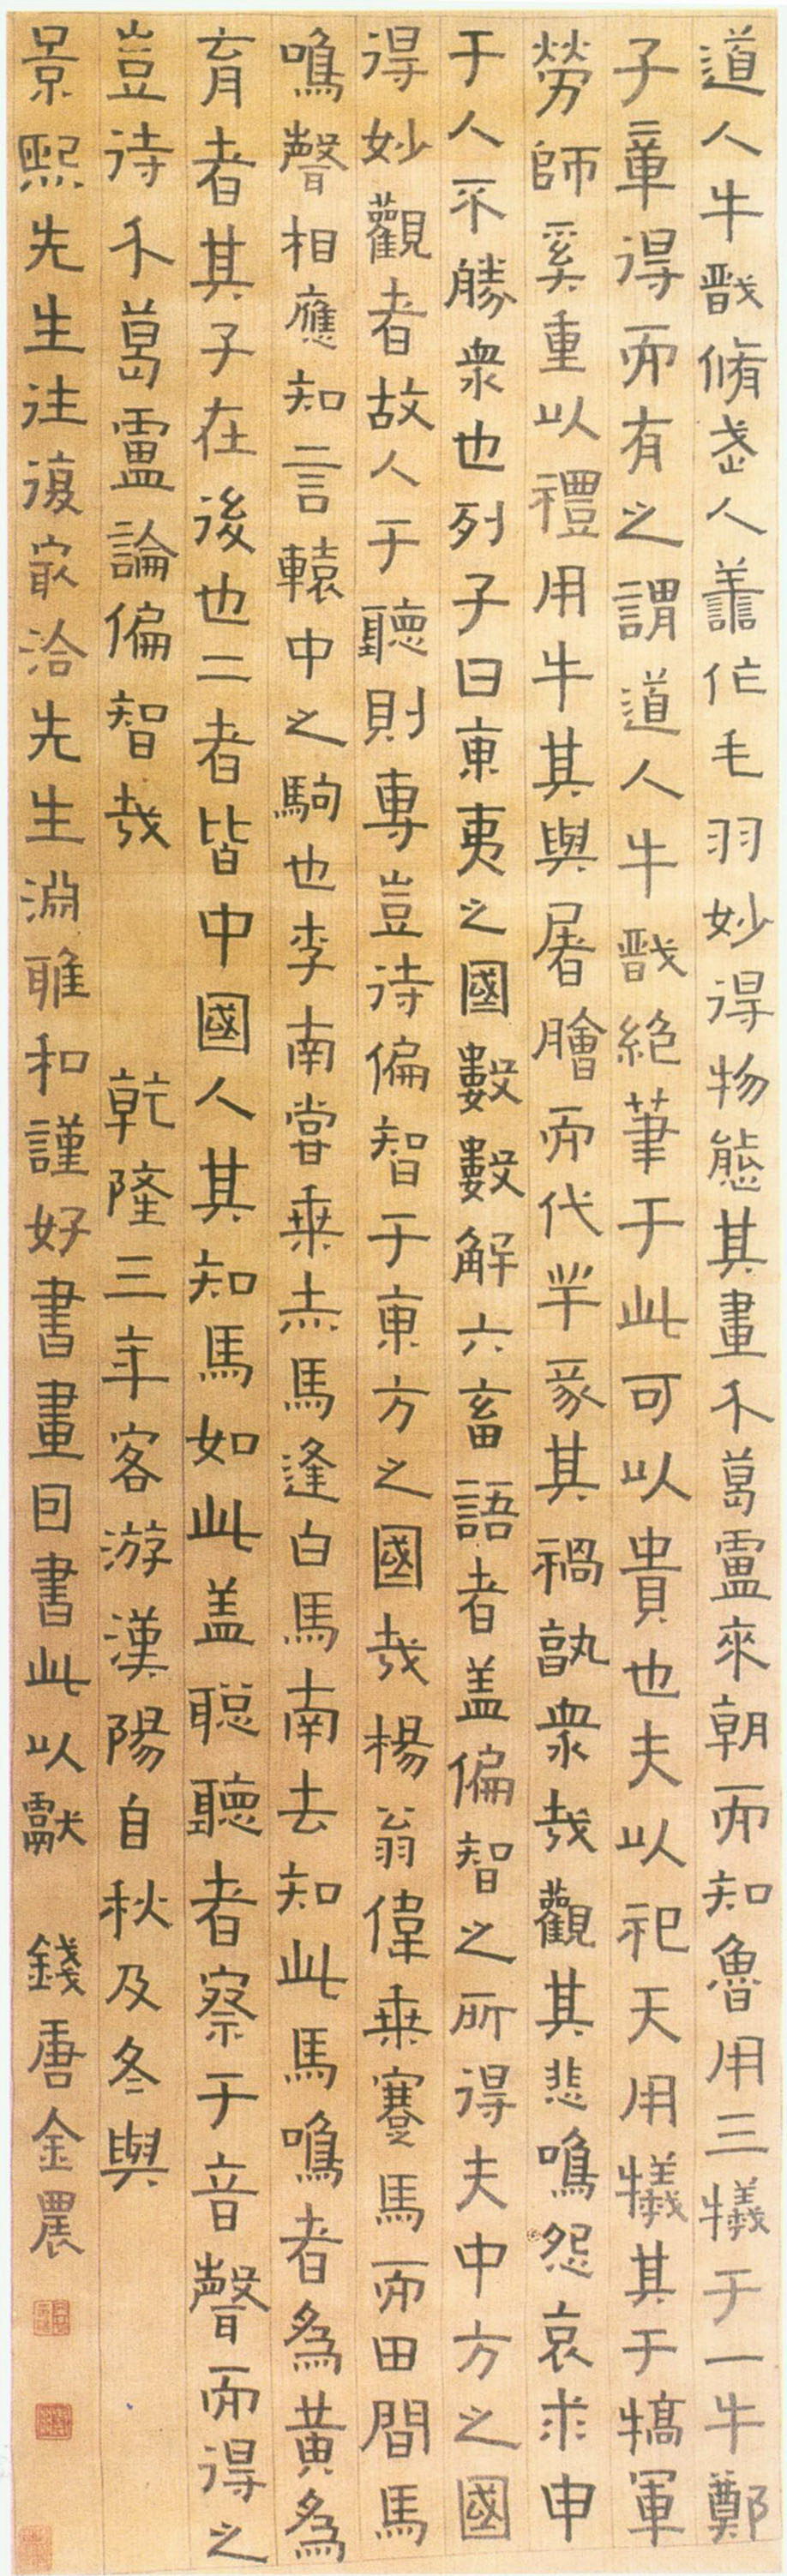 道人牛戩脩武人善作毛羽妙得物態其畫介葛盧來朝而知魯用三犧于一牛鄭
子章得而有之謂道人牛戩絕筆于此可以貴也夫以祀天用犧其于犒軍
勞師奚重以禮用牛其與屠膾而代羊豕其禍孰衆哉觀其悲鳴怨哀求申
于人不勝衆也列子曰東夷之國數數解六畜語者盖偏智之所得夫中方之國
得妙觀者故人于聽則專豈待偏智于東方之國哉楊翁偉乘蹇馬而田間馬
鳴聲相應知言轅中之駒也李南嘗乘赤馬逢白馬南去知此馬鳴者為黄為
育者其子在後也二者皆中國人其知馬如此盖聰聽者察于音聲而得之
豈待介葛盧論偏智哉 乾隆三年客游漢陽自秋及冬與
景熙先生往復冣洽先生淵雅和謹好書畫回書此以獻 錢唐金農